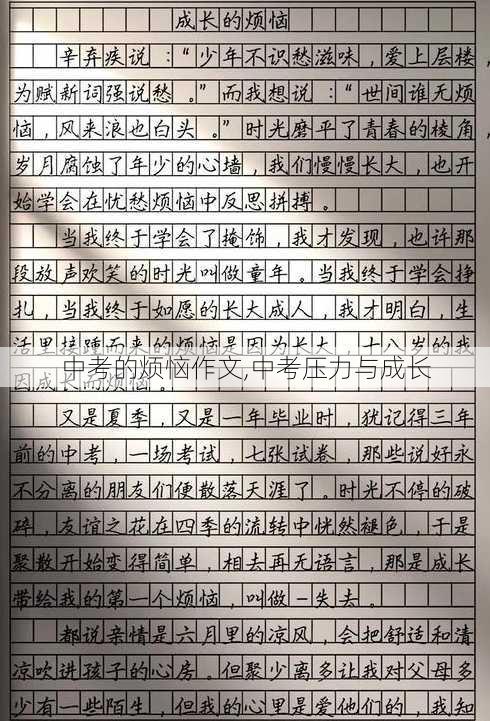 成长的烦恼
辛弃疾说：“少年不识愁滋味，爱上层楼，
为赋新词强说愁。”而我想说：“世间谁无烦
恼，风来浪也白头。”时光磨平了青春的棱角，
岁月腐蚀了年少的心墙，我们慢慢长大，也开
始学会在忧愁烦恼中反思拼搏。
当我终于学会了掩饰，我才发现，也许那
段放声欢笑的时光叫做童年。当我终于学会挣
扎，当我终于如愿的长大成人，我才明白，生
活里接踵而来的烦恼是因为长大，十八岁的我
中考的烦恼作文,中考压力与成长
因成长而烦恼。
又是夏季，又是一年毕业时，犹记得三年
前的中考，一场考试，七张试卷，那些说好永
不分离的朋友们便散落天涯了。时光不停的破
碎，友谊之花在四季的流转中恍然褪色，于是
聚散开始变得简单，相去再无语言，那是成长
带给我的第一个烦恼，叫做－失去。
都说亲情是六月里的凉风，会把舒适和清
凉吹进孩子的心房。但聚少离多让我对父母多
少有一些陌生，但我的心里是爱他们的，我知